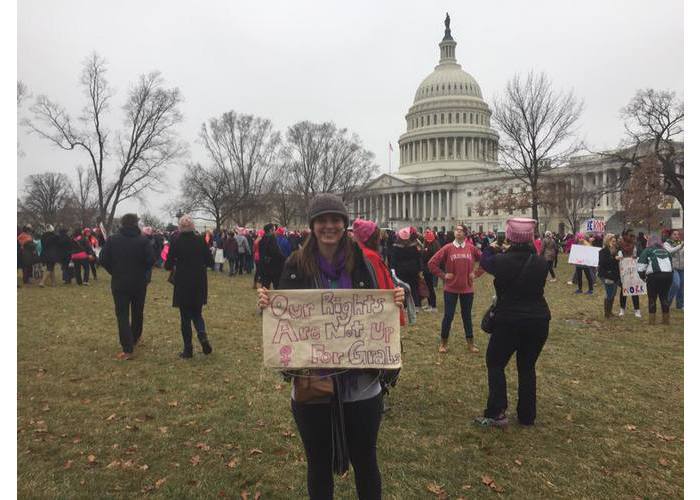 Our Rights
Are Not Up
For Grabs